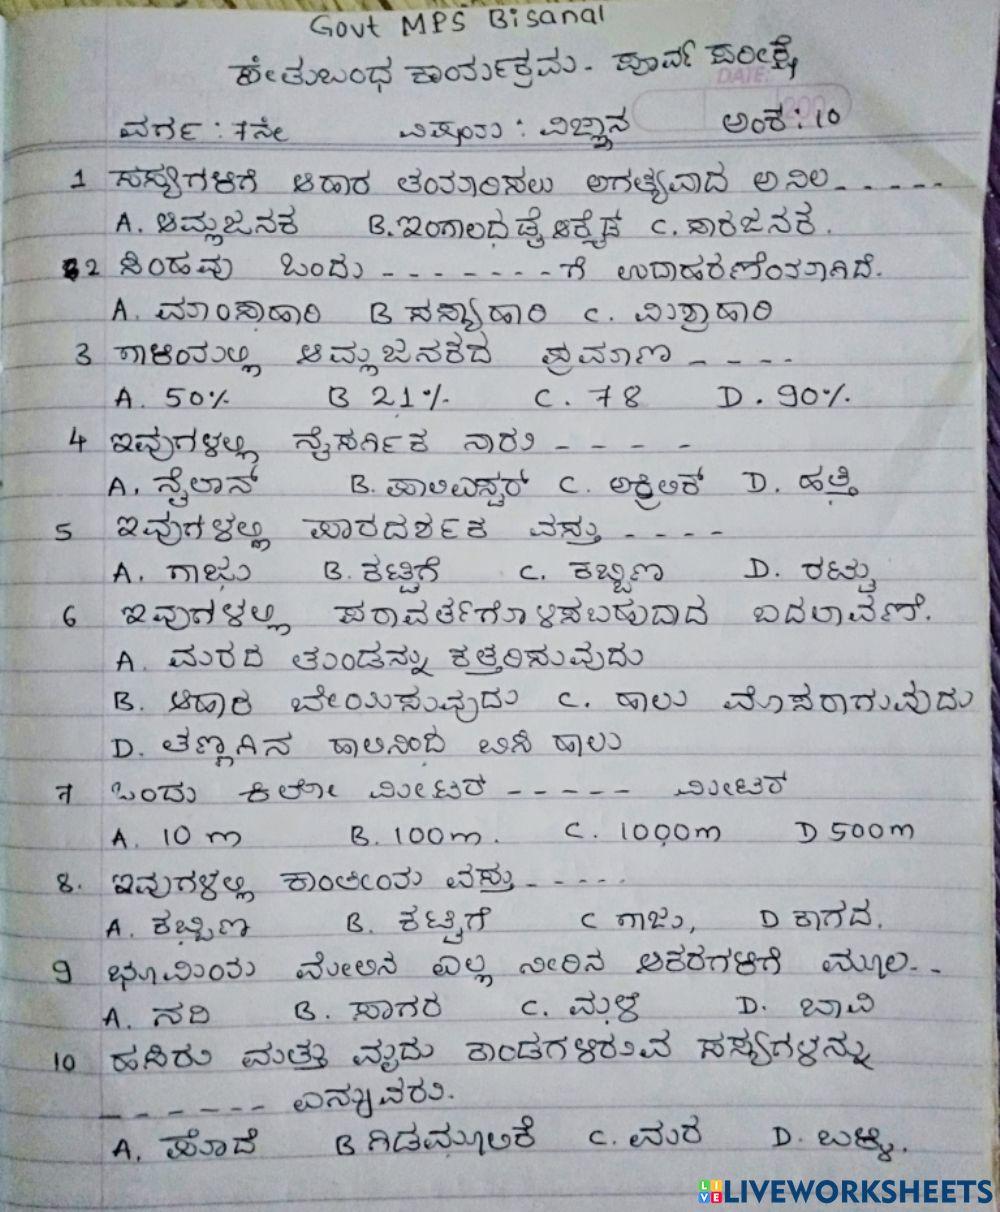 Govt MPS Bisanal
ಸೇತುಬಂಧ ಕಾರ್ಯಕ್ರಮ- ಪೂರ್ವ ಪರೀಕ್ಷೆ
DATE:
ವರ್ಗ : 7ನೇ ವಿಷಯ : ವಿಜ್ಞಾನ ಅಂಕ : 10
1 ಸಸ್ಯಗಳಿಗೆ ಆಹಾರ ತಯಾರಿಸಲು ಅಗತ್ಯವಾದ ಅನಿಲ -----
A. ಆಮ್ಲಜನಕ B. ಇಂಗಾಲದ ಡೈ ಆಕ್ಸೈಡ C. ಸಾರಜನಕ.
2 ಸಿಂಹವು ಒಂದು -------- ಗೆ ಉದಾಹರಣೆಯಾಗಿದೆ.
A. ಮಾಂಸಾಹಾರಿ B ಸಸ್ಯಾಹಾರಿ C. ಮಿಶ್ರಾಹಾರಿ
3 ಗಾಳಿಯಲ್ಲಿ ಆಮ್ಲಜನಕದ ಪ್ರಮಾಣ ----
A. 50% B 21% C. 78 D. 90%
4 ಇವುಗಳಲ್ಲಿ ನೈಸರ್ಗಿಕ ನಾರು ----
A. ನೈಲಾನ್ B. ಪಾಲಿಎಸ್ಟರ್ C. ಅಕ್ರಿಲಿಕ್ D. ಹತ್ತಿ
5 ಇವುಗಳಲ್ಲಿ ಪಾರದರ್ಶಕ ವಸ್ತು ----
A. ಗಾಜು B. ಕಟ್ಟಿಗೆ C. ಕಬ್ಬಿಣ D. ರಟ್ಟು
6 ಇವುಗಳಲ್ಲಿ ಪರಾವರ್ತಗೊಳಿಸಬಹುದಾದ ಬದಲಾವಣೆ.
A. ಮರದ ತುಂಡನ್ನು ಕತ್ತರಿಸುವುದು
B. ಆಹಾರ ಬೇಯಿಸುವುದು C. ಹಾಲು ಮೊಸರಾಗುವುದು
D. ತಣ್ಣಗಿನ ಹಾಲಿನಿಂದ ಬಿಸಿ ಹಾಲು
7 ಒಂದು ಕಿಲೋ ಮೀಟರ ----- ಮೀಟರ
A. 10 m B. 100m. C. 1000m D 500m
8. ಇವುಗಳಲ್ಲಿ ಕಾಂತೀಯ ವಸ್ತು -----
A. ಕಬ್ಬಿಣ B. ಕಟ್ಟಿಗೆ C ಗಾಜು, D ಕಾಗದ.
9 ಭೂಮಿಯ ಮೇಲಿನ ಎಲ್ಲ ನೀರಿನ ಆಕರಗಳಿಗೆ ಮೂಲ --
A. ನದಿ B. ಸಾಗರ C. ಮಳೆ D. ಬಾವಿ
10 ಹಸಿರು ಮತ್ತು ಮೃದು ಕಾಂಡಗಳಿರುವ ಸಸ್ಯಗಳನ್ನು
------ ಎನ್ನುವರು.
A. ಪೊದೆ B ಗಿಡಮೂಲಿಕೆ C. ಮರ D. ಬಳ್ಳಿ.
LIVEWORKSHEETS